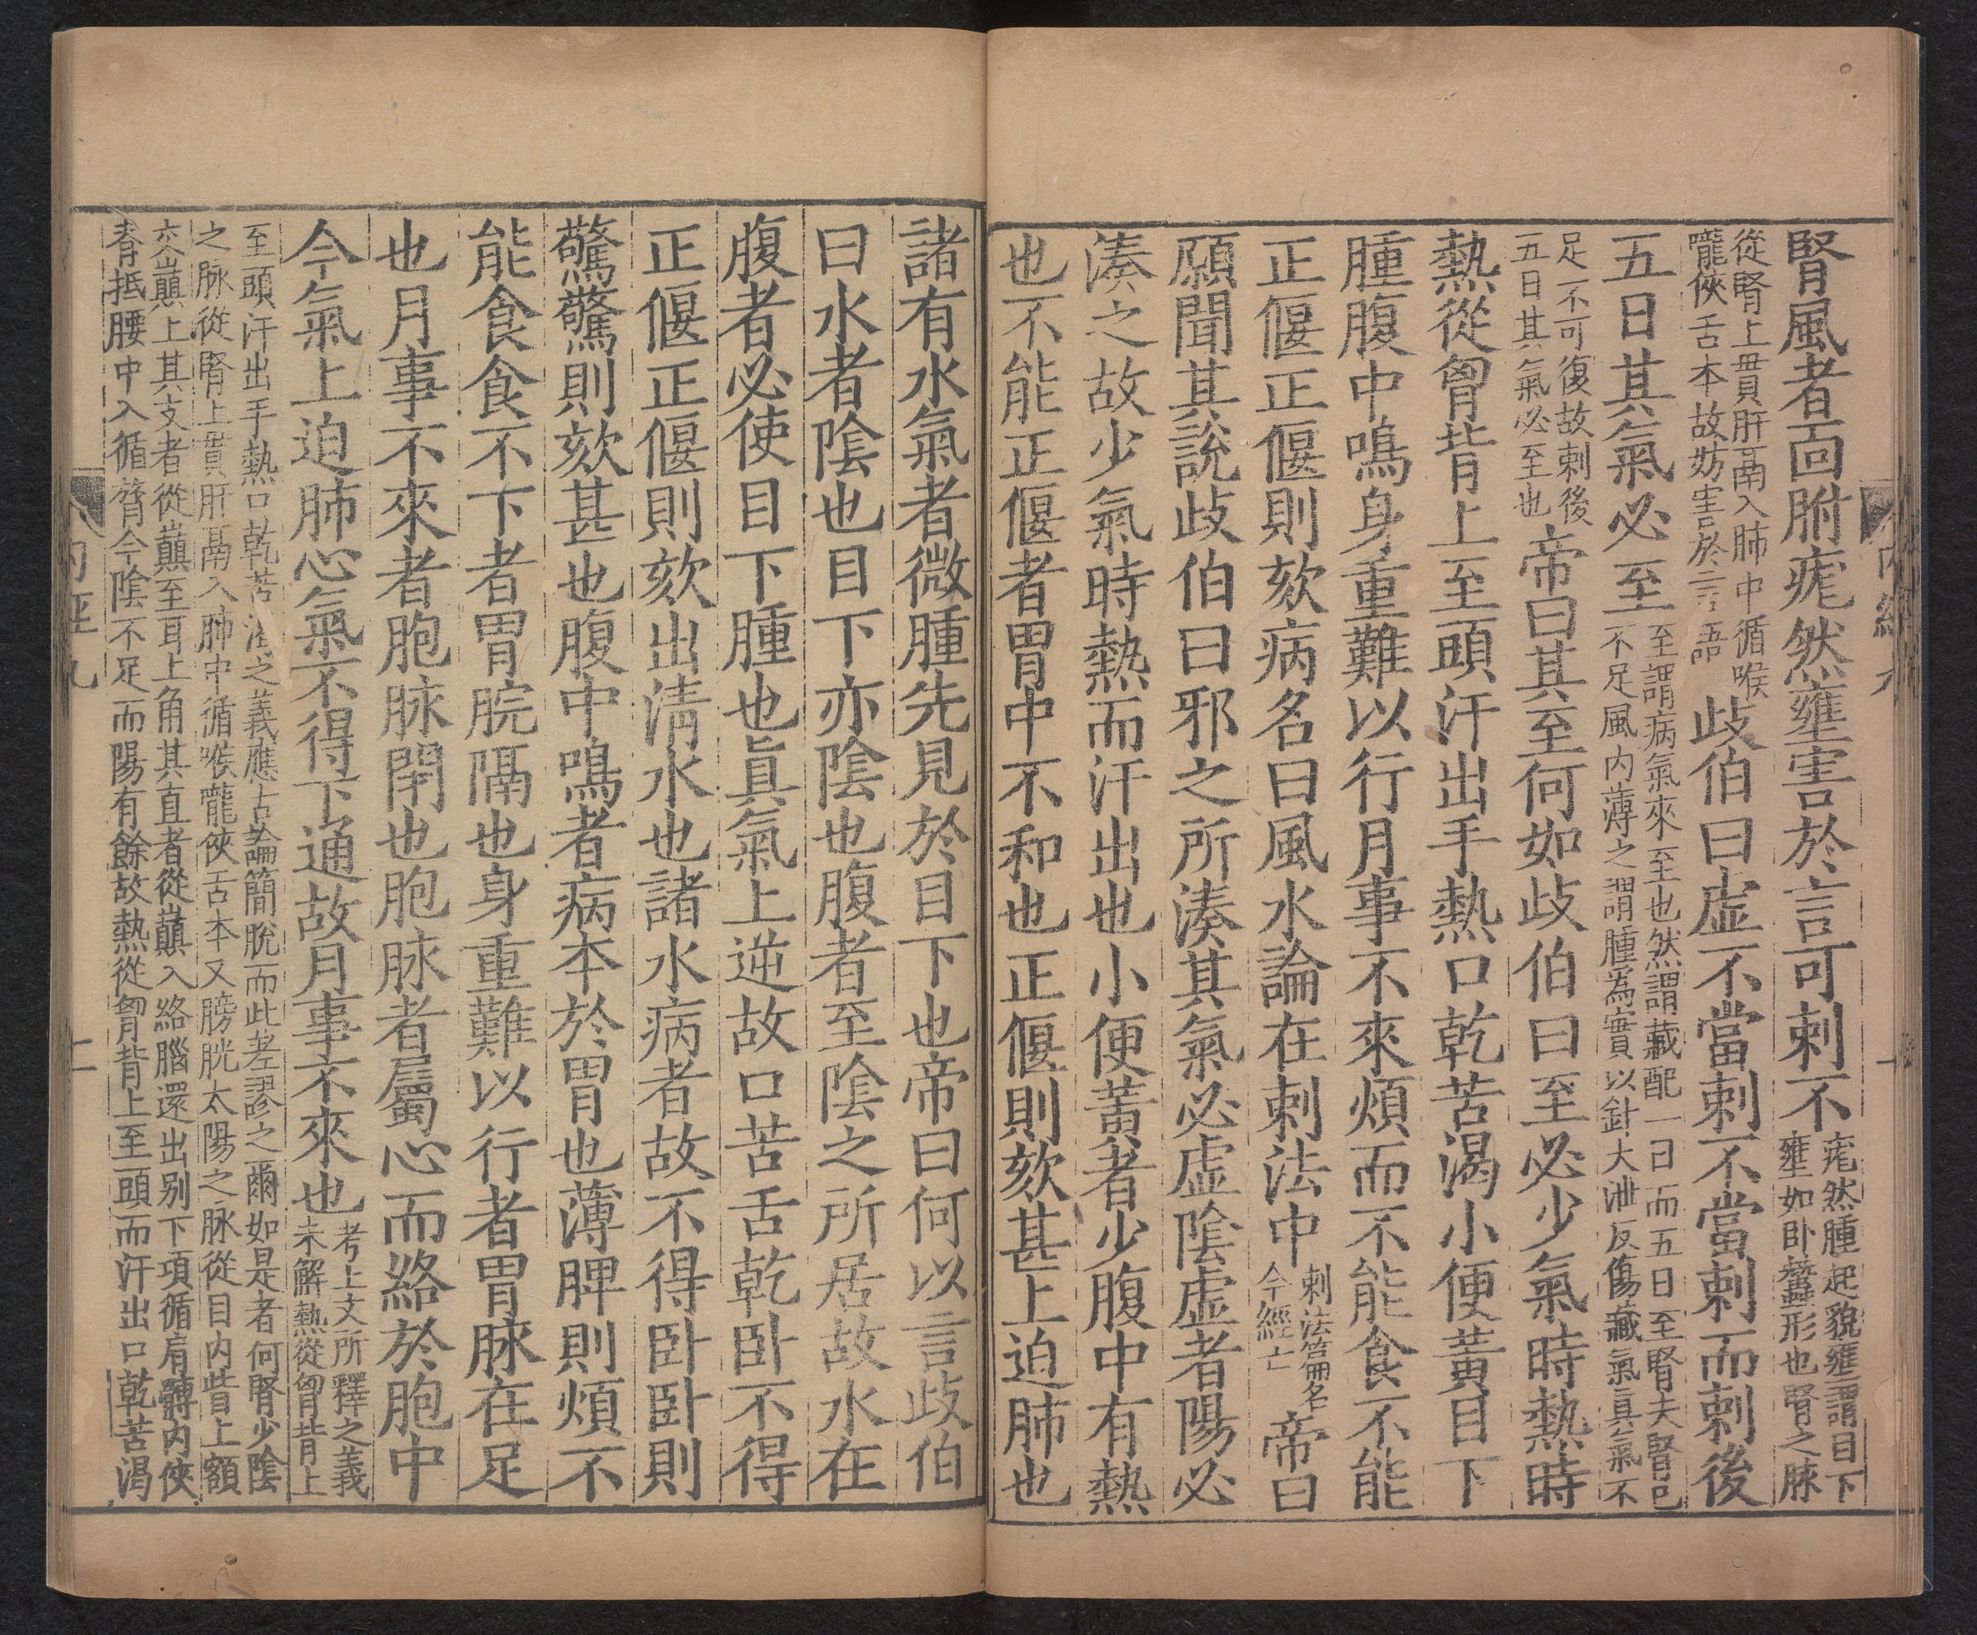 腎風者面胕痝然壅害於言可刺不
痝然腫起貌壅謂目下
壅如卧蠶形也腎之脉
從腎上貫肝鬲入肺中循喉
嚨俠舌本故妨害於言語
歧伯曰虛不當刺不當刺而刺後
五日其氣必至
至謂病氣來至也然謂藏配一日而五日至腎夫腎已
不足風內薄之謂腫爲實以針大泄反傷藏氣真氣不
足不可復故刺後
五日其氣必至也
帝曰其至何如歧伯曰至必少氣時熱時
熱從胷背上至頭汗出手熱口乾苦渴小便黃目下
腫腹中鳴身重難以行月事不來煩而不能食不能
正偃正偃則欬病名曰風水論在刺法中
刺法篇名
今經亡
帝曰
願聞其說歧伯曰邪之所湊其氣必虛陰虛者陽必
湊之故少氣時熱而汗出也小便黃者少腹中有熱
也不能正偃者胃中不和也正偃則欬甚上迫肺也
諸有水氣者微腫先見於目下也帝曰何以言歧伯
曰水者陰也目下亦陰也腹者至陰之所居故水在
腹者必使目下腫也眞氣上逆故口苦舌乾卧不得
正偃正偃則欬出清水也諸水病者故不得卧卧則
驚驚則欬甚也腹中鳴者病本於胃也薄脾則煩不
能食食不下者胃脘隔也身重難以行者胃脉在足
也月事不來者胞脉閉也胞脉者屬心而絡於胞中
今氣上迫肺心氣不得下通故月事不來也
考上文所釋之義
未解熱從胷背上
至頭汗出手熱口乾苦渴之義應古論簡脫而此差謬之爾如是者何腎少陰
之脉從腎上貫肝鬲入肺中循喉嚨俠舌本又膀胱太陽之脉從目內眥上額
交巔上其支者從巔至耳上角其直者從巔入絡腦還出别下項循肩髆內俠
脊抵腰中入循膂今陰不足而陽有餘故熱從胷背上至頭而汗出口乾苦渴